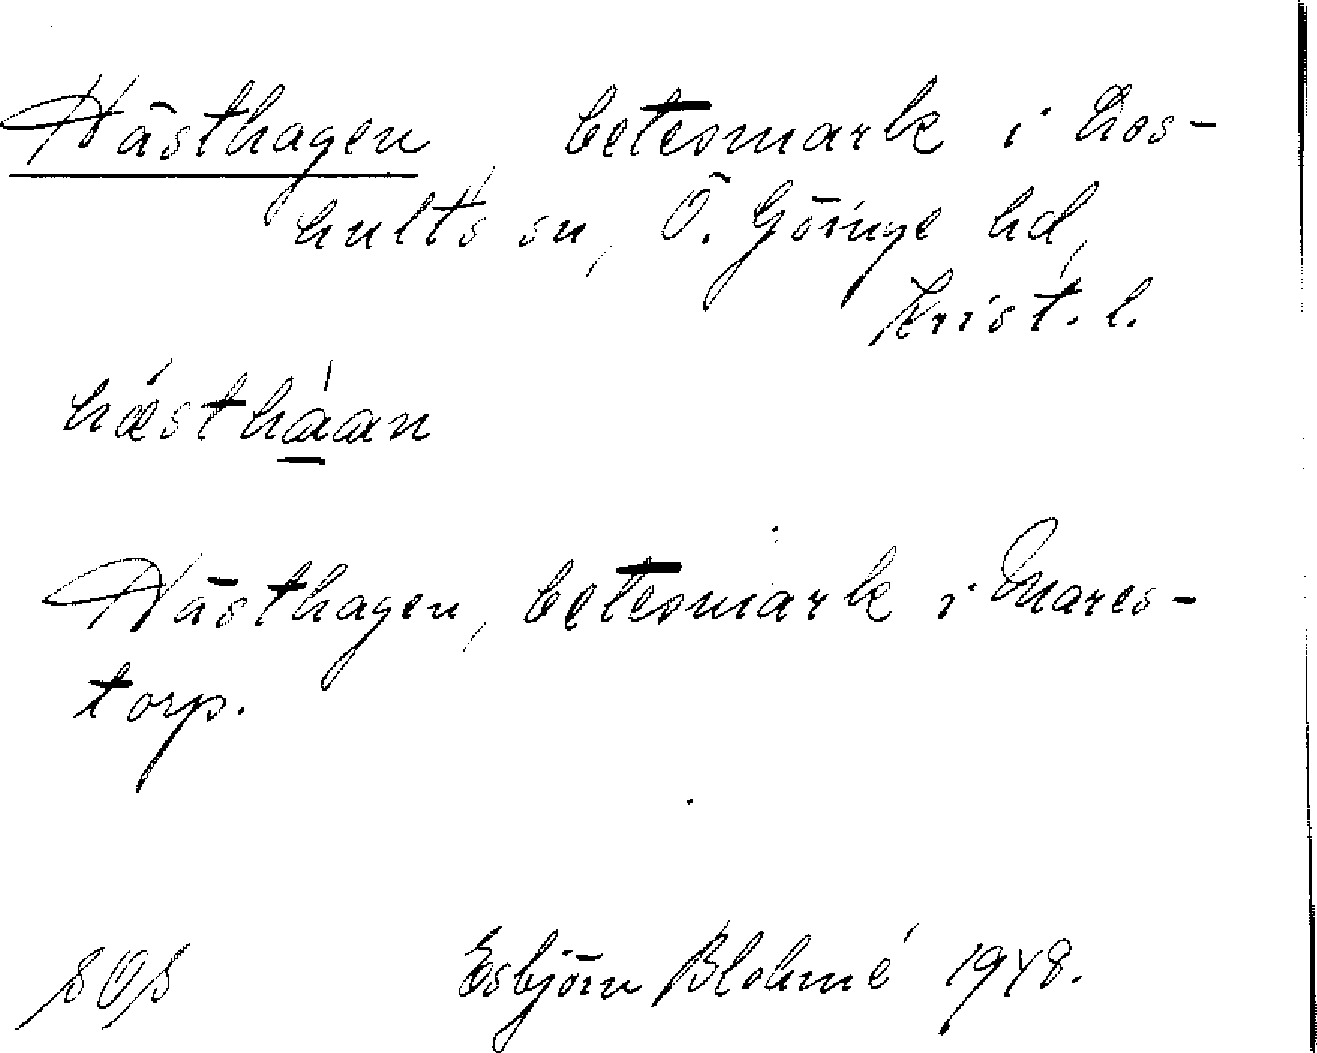 Hästhagen, betesmark i Los-
hults sn, Ö. Göinge hd,
Krist. l.
hǽsthàan
Hästhagen, betesmark i Mares-
torp.
SOS Esbjörn Blohmé 1948.